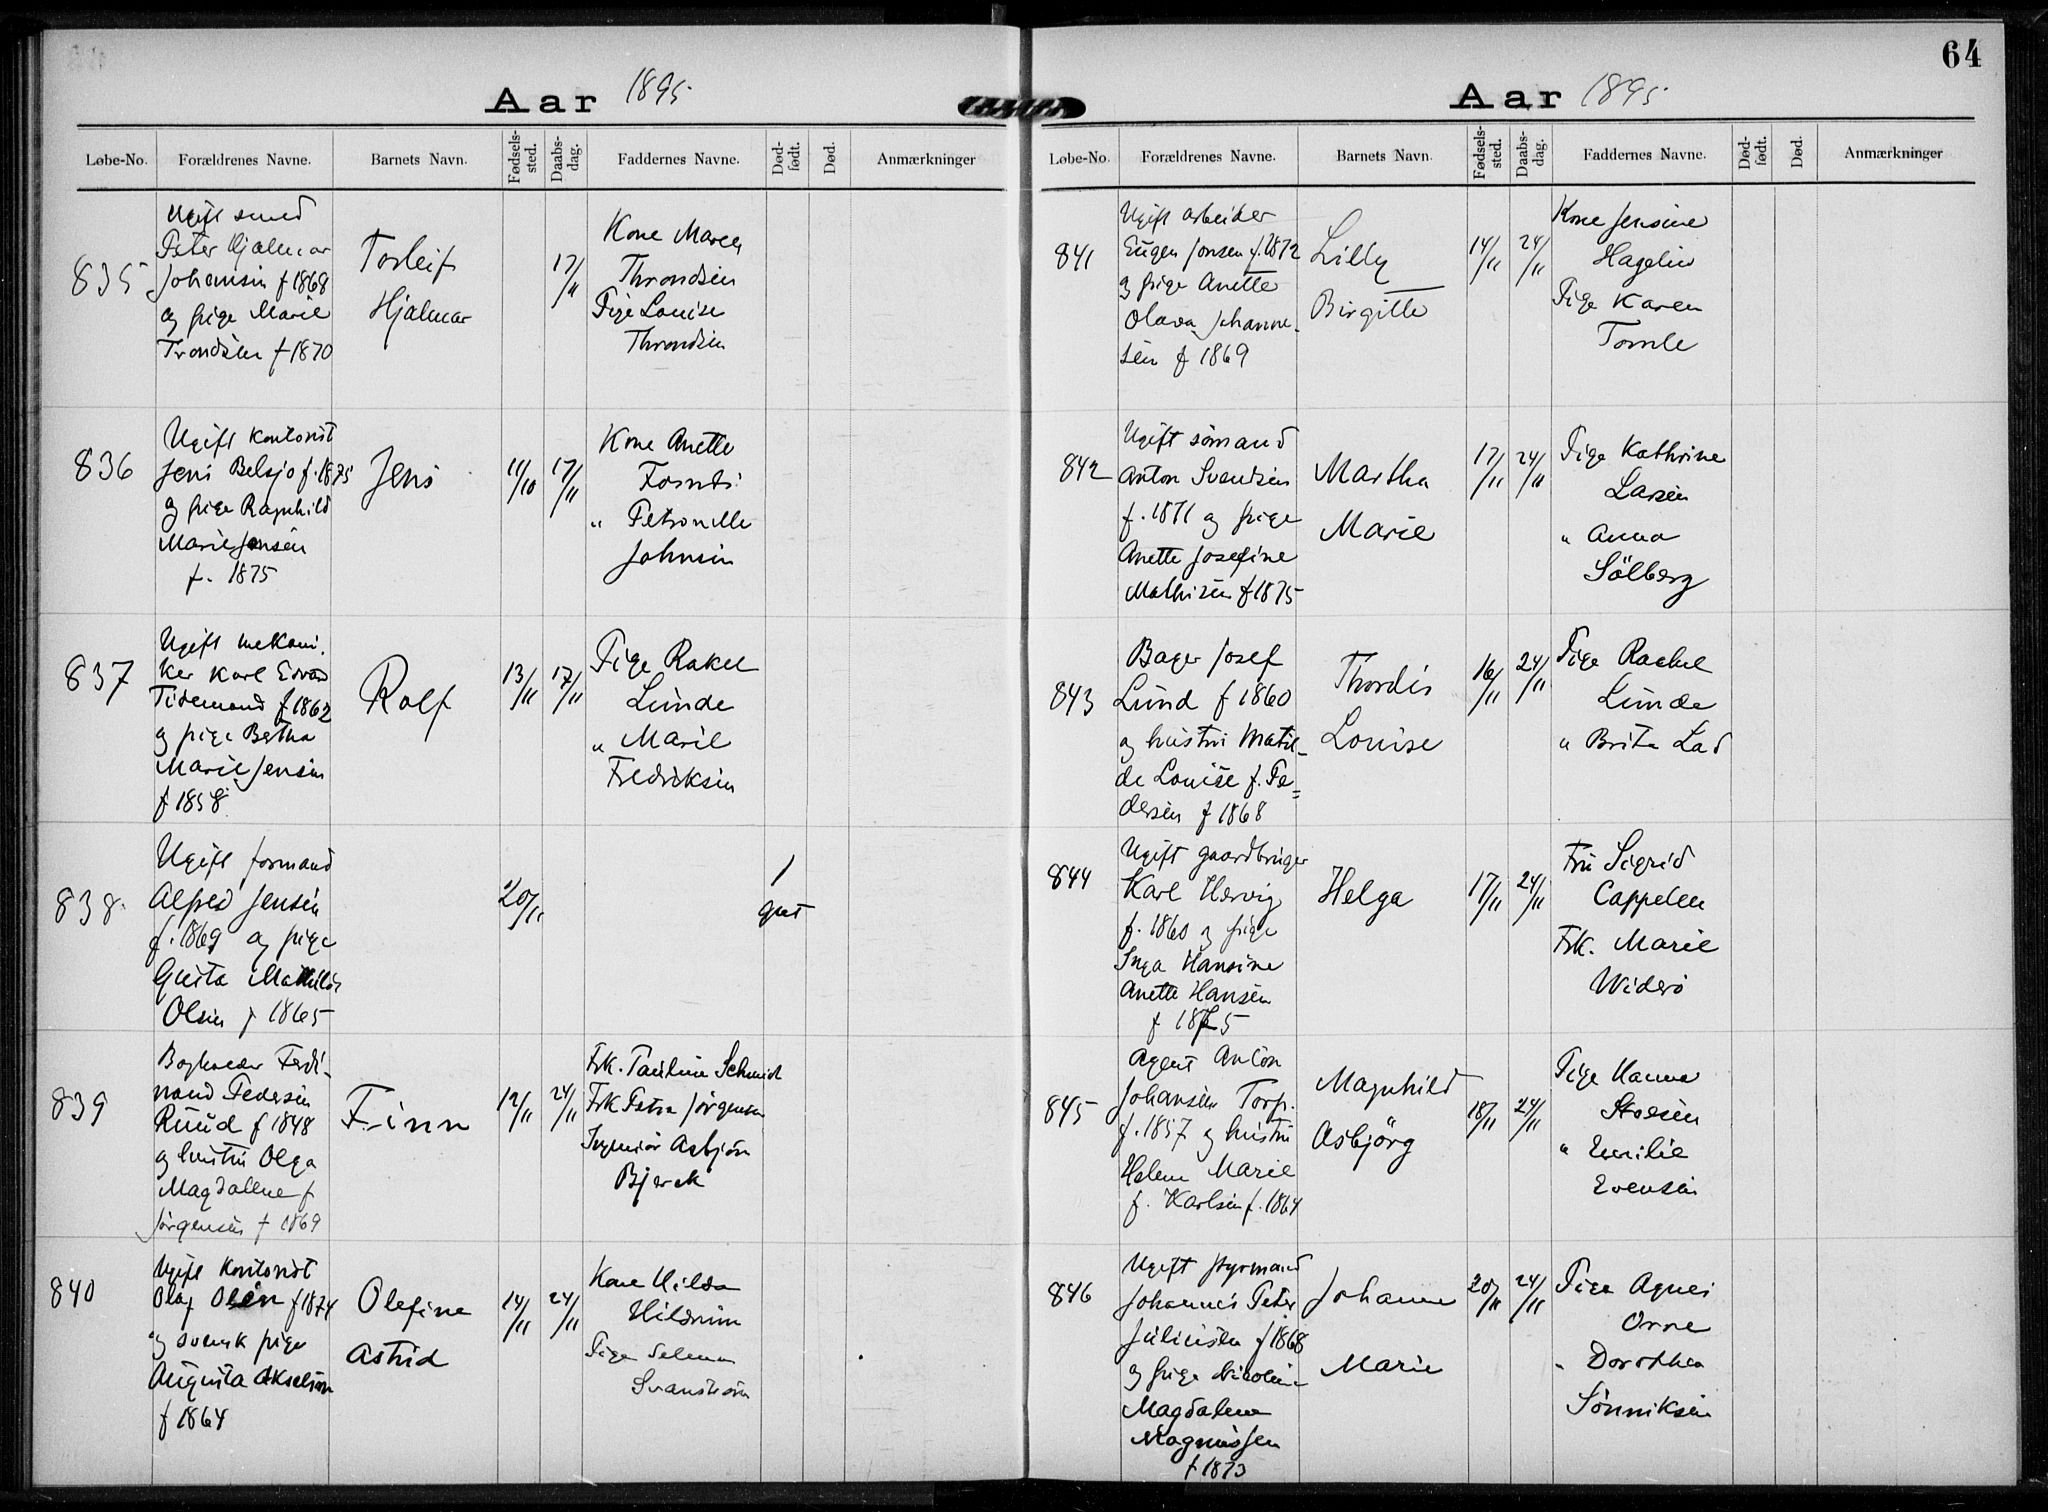 Aar 1895
Løbe-No. Forældrenes Navne. Barnets Navn. Fødsels-sted. Daabs-dag. Faddernes Navne. Død-født. Død. Anmærkninger
835
Ugift smed
Peter Hjalmar
Johansen f 1868
og pige Marie
Trondsen f 1870
Torleif
Hjalmar
17/11
Kone Maren
Throndsen
Pige Louise
Throndsen
836
Ugift Kontorist
Jens Belsjø f. 1875
og pige Ragnhild
Marie Jensen
f. 1875
Jens
11/10
17/11
Kone Anette
" Petronelle
Johnsen
837
Ugift mekani-
ker Karl Edvard
Tidemand f 1862
og pige Bertha
Marie Jensen
f 1858
Rolf
13/11
17/11
Pige Rakel
Lunde
" Marie
Fredriksen
838
Ugift formand
Alfred Jensen
f. 1869 og pige
Gusta Mathilde
Olsen f 1865
20/11
1
gut
839
Bogholder Ferdi-
nand Pedersen
Ruud f 1848
og hustru Olga
Magdalene f
Jörgensen f 1869
Finn
12/11
24/11
Frk. Pauline Schmidt
Frk Petra Jörgensen
Ingeniör Asbjörn
Bjerck
840
Ugift Kontorist
Olaf Olsen f 1874
og svensk pige
Augusta Akselson
f 1864
Olefine
Astrid
14/11
24/11
Kone Hilda
Hildrum
Pige Selema
Svanström
64
Aar 1895
Løbe-No. Forældrenes Navne. Barnets Navn. Fødsels-sted. Daabs-dag. Faddernes Navne. Død-født. Død. Anmærkninger
841
Ugift arbeider
Eugen Jonsen f. 1872
og pige Anette
Olava Johanne-
sen f 1869
Lilly
Birgitte
14/11
24/11
Kone Jensine
Hagelin
Pige Karen
Tomle
842
Ugift sömand
Anton Svendsen
f. 1871 og pige
Anette Josefine
Mathisen f 1875
Martha
Marie
17/11
24/11
Pige Kathrine
Larsen
" Anna
Sölberg
843
Bager Josef
Lund f 1860
og hustru Matil-
de Louise f. Pe-
dersen f 1868
Thordis
Louise
16/11
24/11
Pige Rachel
Lunde
" Brita Lad
844
Ugift gaardbruger
Karl Hervig
f. 1860 og pige
Inga Hansine
Anette Hansen
f 1875
Helga
17/11
24/11
Fru Sigrid
Cappelen
Frk. Marie
Widerö
845
Agent Anton
Johansen Torp.
f. 1857 og hustru
Helene Marie
f. Karlsen f. 1864
Magnhild
Asbjörg
18/11
24/11
Pige Hanna
" Emilie
Evensen
846
Ugift styrmand
Johannes Peter
Juliussen f 1868
og pige Nicoline
Magdalene
Magnussen
f 1873
Johanne
Marie
20/11
24/11
Pige Agnes
Orre
" Dorothea
Sönniksen